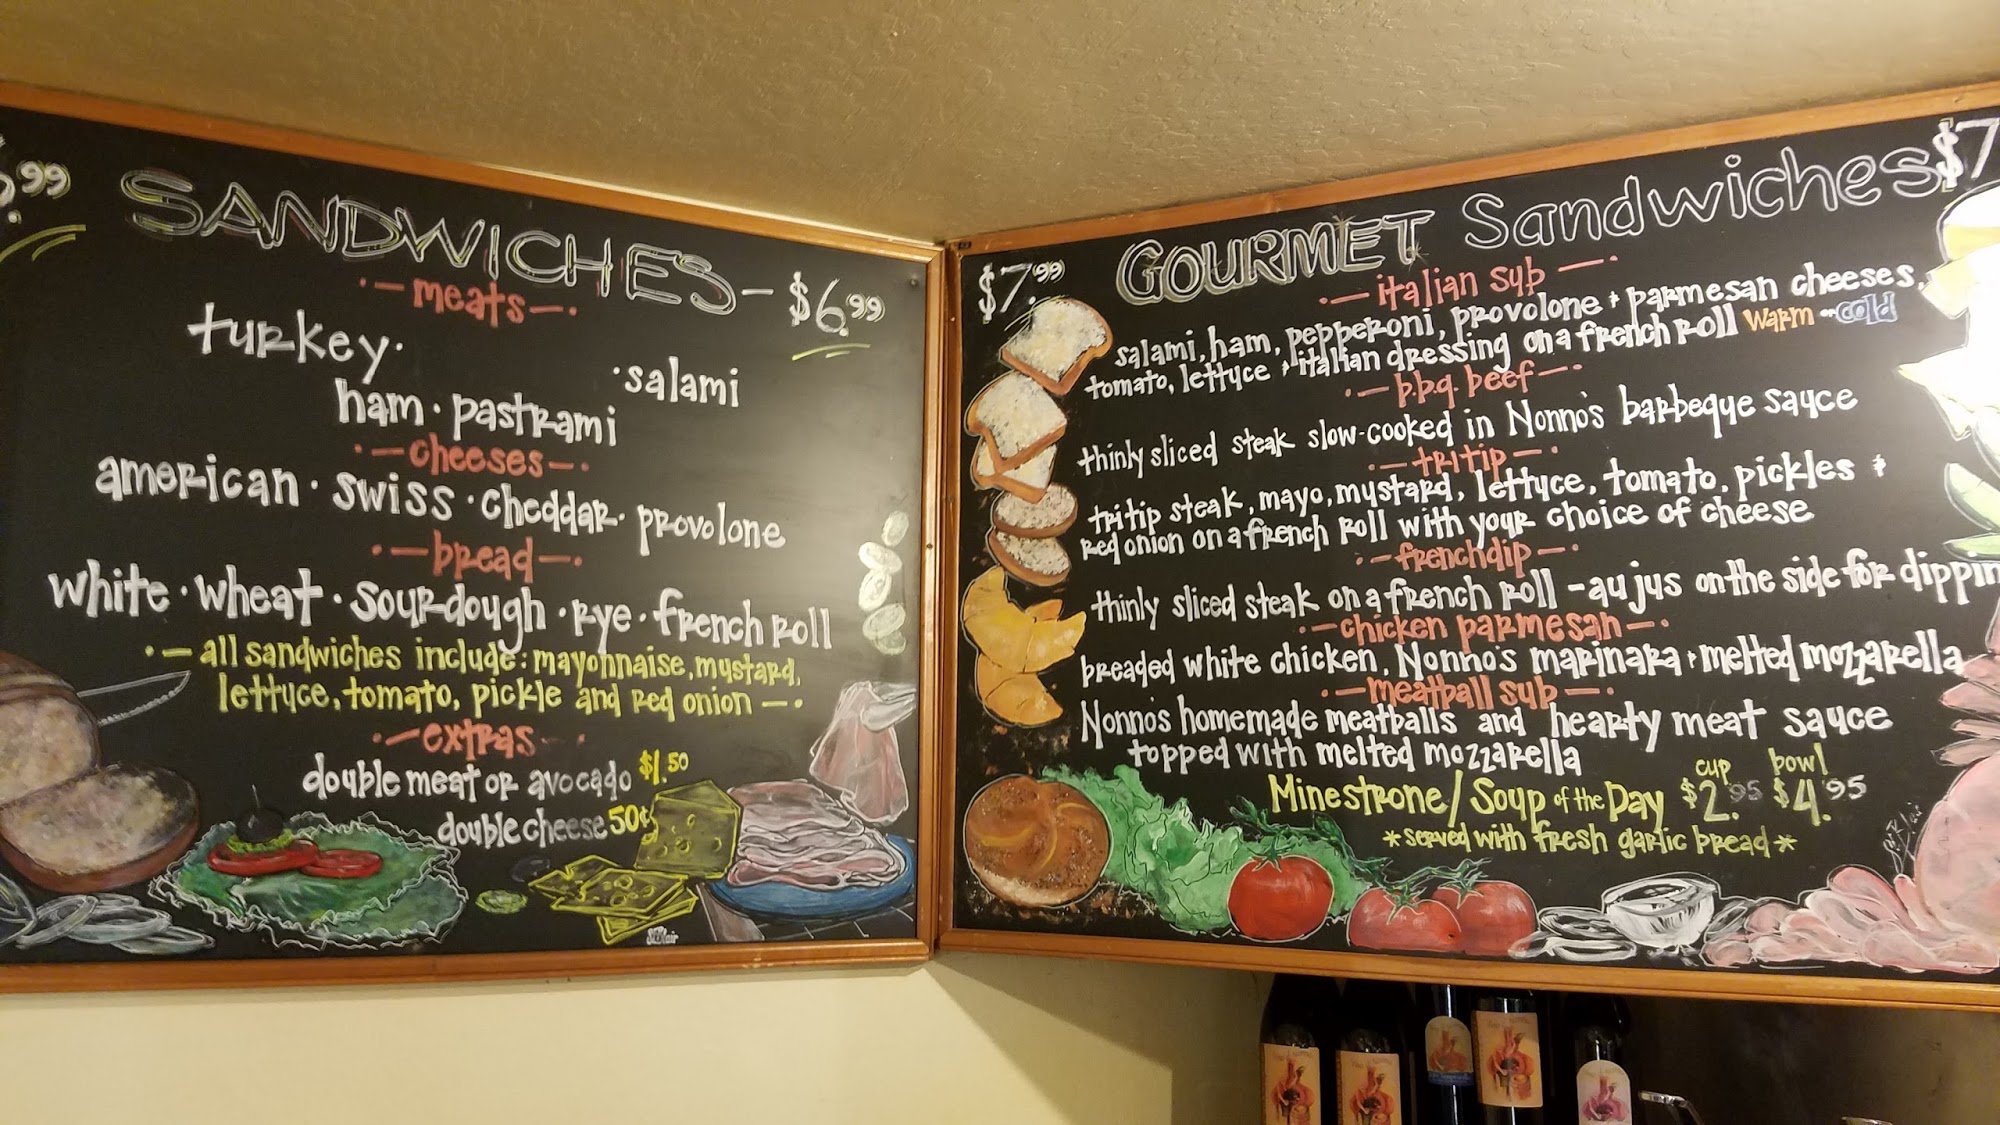 .99
SANDWICHES - $6.99
·—meats—·
turkey·
·salami
ham · pastrami
·—cheeses—·
american · swiss · cheddar · provolone
·—bread—·
white · wheat · sourdough · rye · french roll
·—all sandwiches include: mayonnaise, mustard,
lettuce, tomato, pickle and red onion—·
·—extras—·
double meat or avocado $1.50
double cheese 50¢
$7.99 GOURMET Sandwiches $7
·—italian sub—·
salami, ham, pepperoni, provolone + parmesan cheeses,
tomato, lettuce + italian dressing on a french roll warm or cold
·—b.b.q. beef—·
thinly sliced steak slow-cooked in Nonno's barbeque sauce
·—tritip—·
tritip steak, mayo, mustard, lettuce, tomato, pickles +
red onion on a french roll with your choice of cheese
·—frenchdip—·
thinly sliced steak on a french roll - au jus on the side for dippin
·—chicken parmesan—·
breaded white chicken, Nonno's marinara + melted mozzarella
·—meatball sub—·
Nonno's homemade meatballs and hearty meat sauce
topped with melted mozzarella
cup bowl
Minestrone/Soup of the Day $2.95 $4.95
*served with fresh garlic bread*